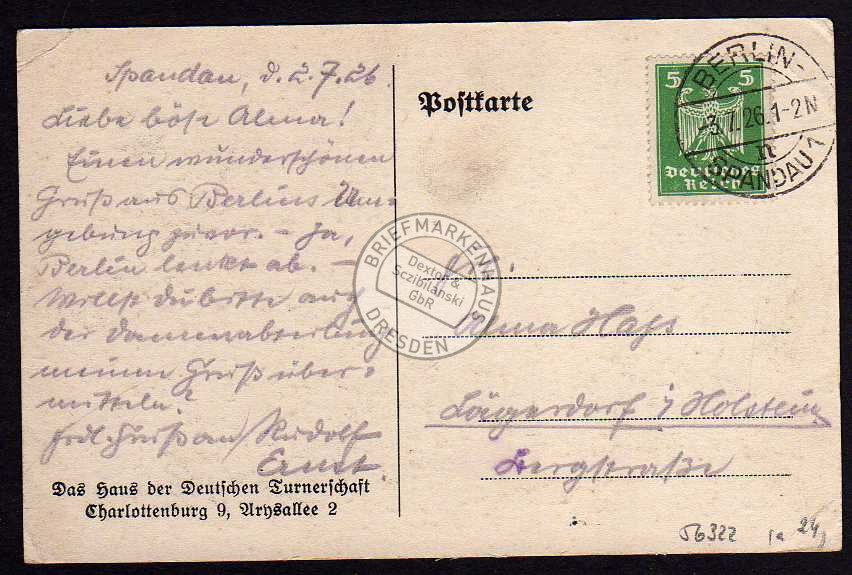 Spandau, d. 2.7.26.
Liebe böse Alma!
Einen wunderschönen
Gruß aus Berlins Um-
gebung zuvor. – Ja,
Berlin lenkt ab. –
Willst du bitte auch
der Damenabteilung
meinen Gruß über-
mitteln?
Hrzl. Gruß an Rudolf
Ernst.
Das Haus der Deutschen Turnerschaft
Charlottenburg 9, Arysallee 2
Postkarte
5 5
Deutsches
Reich
BERLIN-
3.7.26.1-2N
n
SPANDAU 1
BRIEFMARKENHAUS
Dextor &
Sczibilanski
GbR
DRESDEN
Alma
Lägerdorf i/ Holstein
Bergstraße
56322
24,